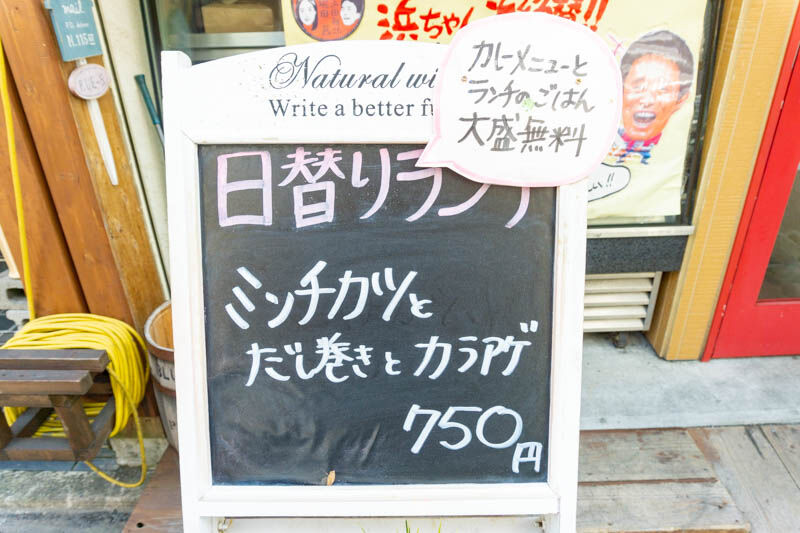 mail
H.115
浜ちゃん
Natural wi
Write a better fu
カレーメニューと
ランチのごはん
大盛無料
日替りランチ
ミンチカツと
だし巻きとカラアゲ
750円